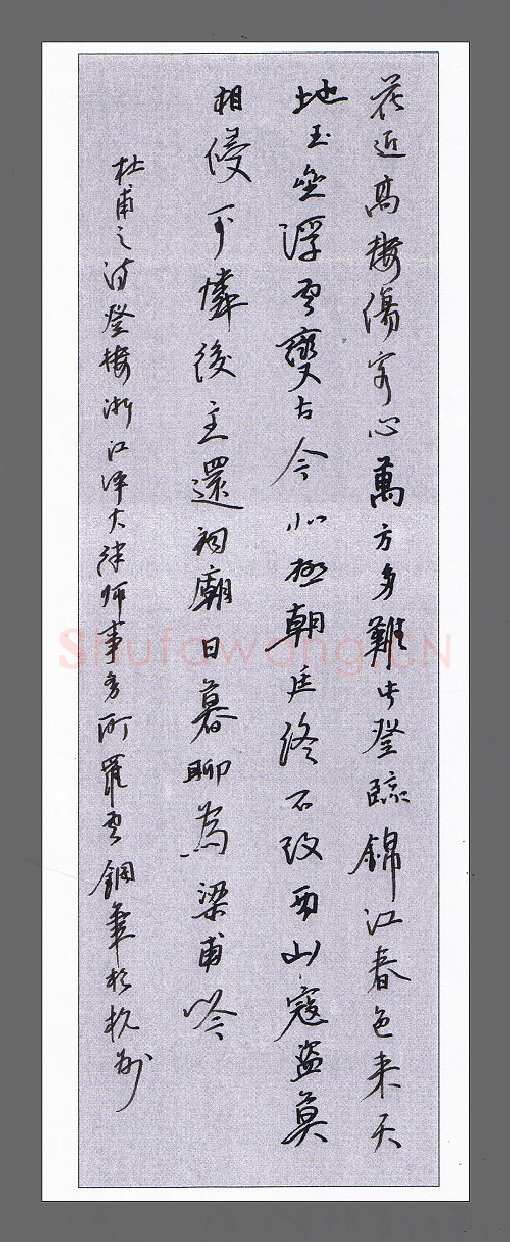 花近高樓傷客心萬方多難此登臨錦江春色来天
地玉壘浮雲變古今北極朝廷終不改西山寇盜莫
相侵可憐後主還祠廟日暮聊為梁甫吟
杜甫之诗登樓浙江泽大律师事务所羅雲鋼筆於杭州
Shufawang.CN